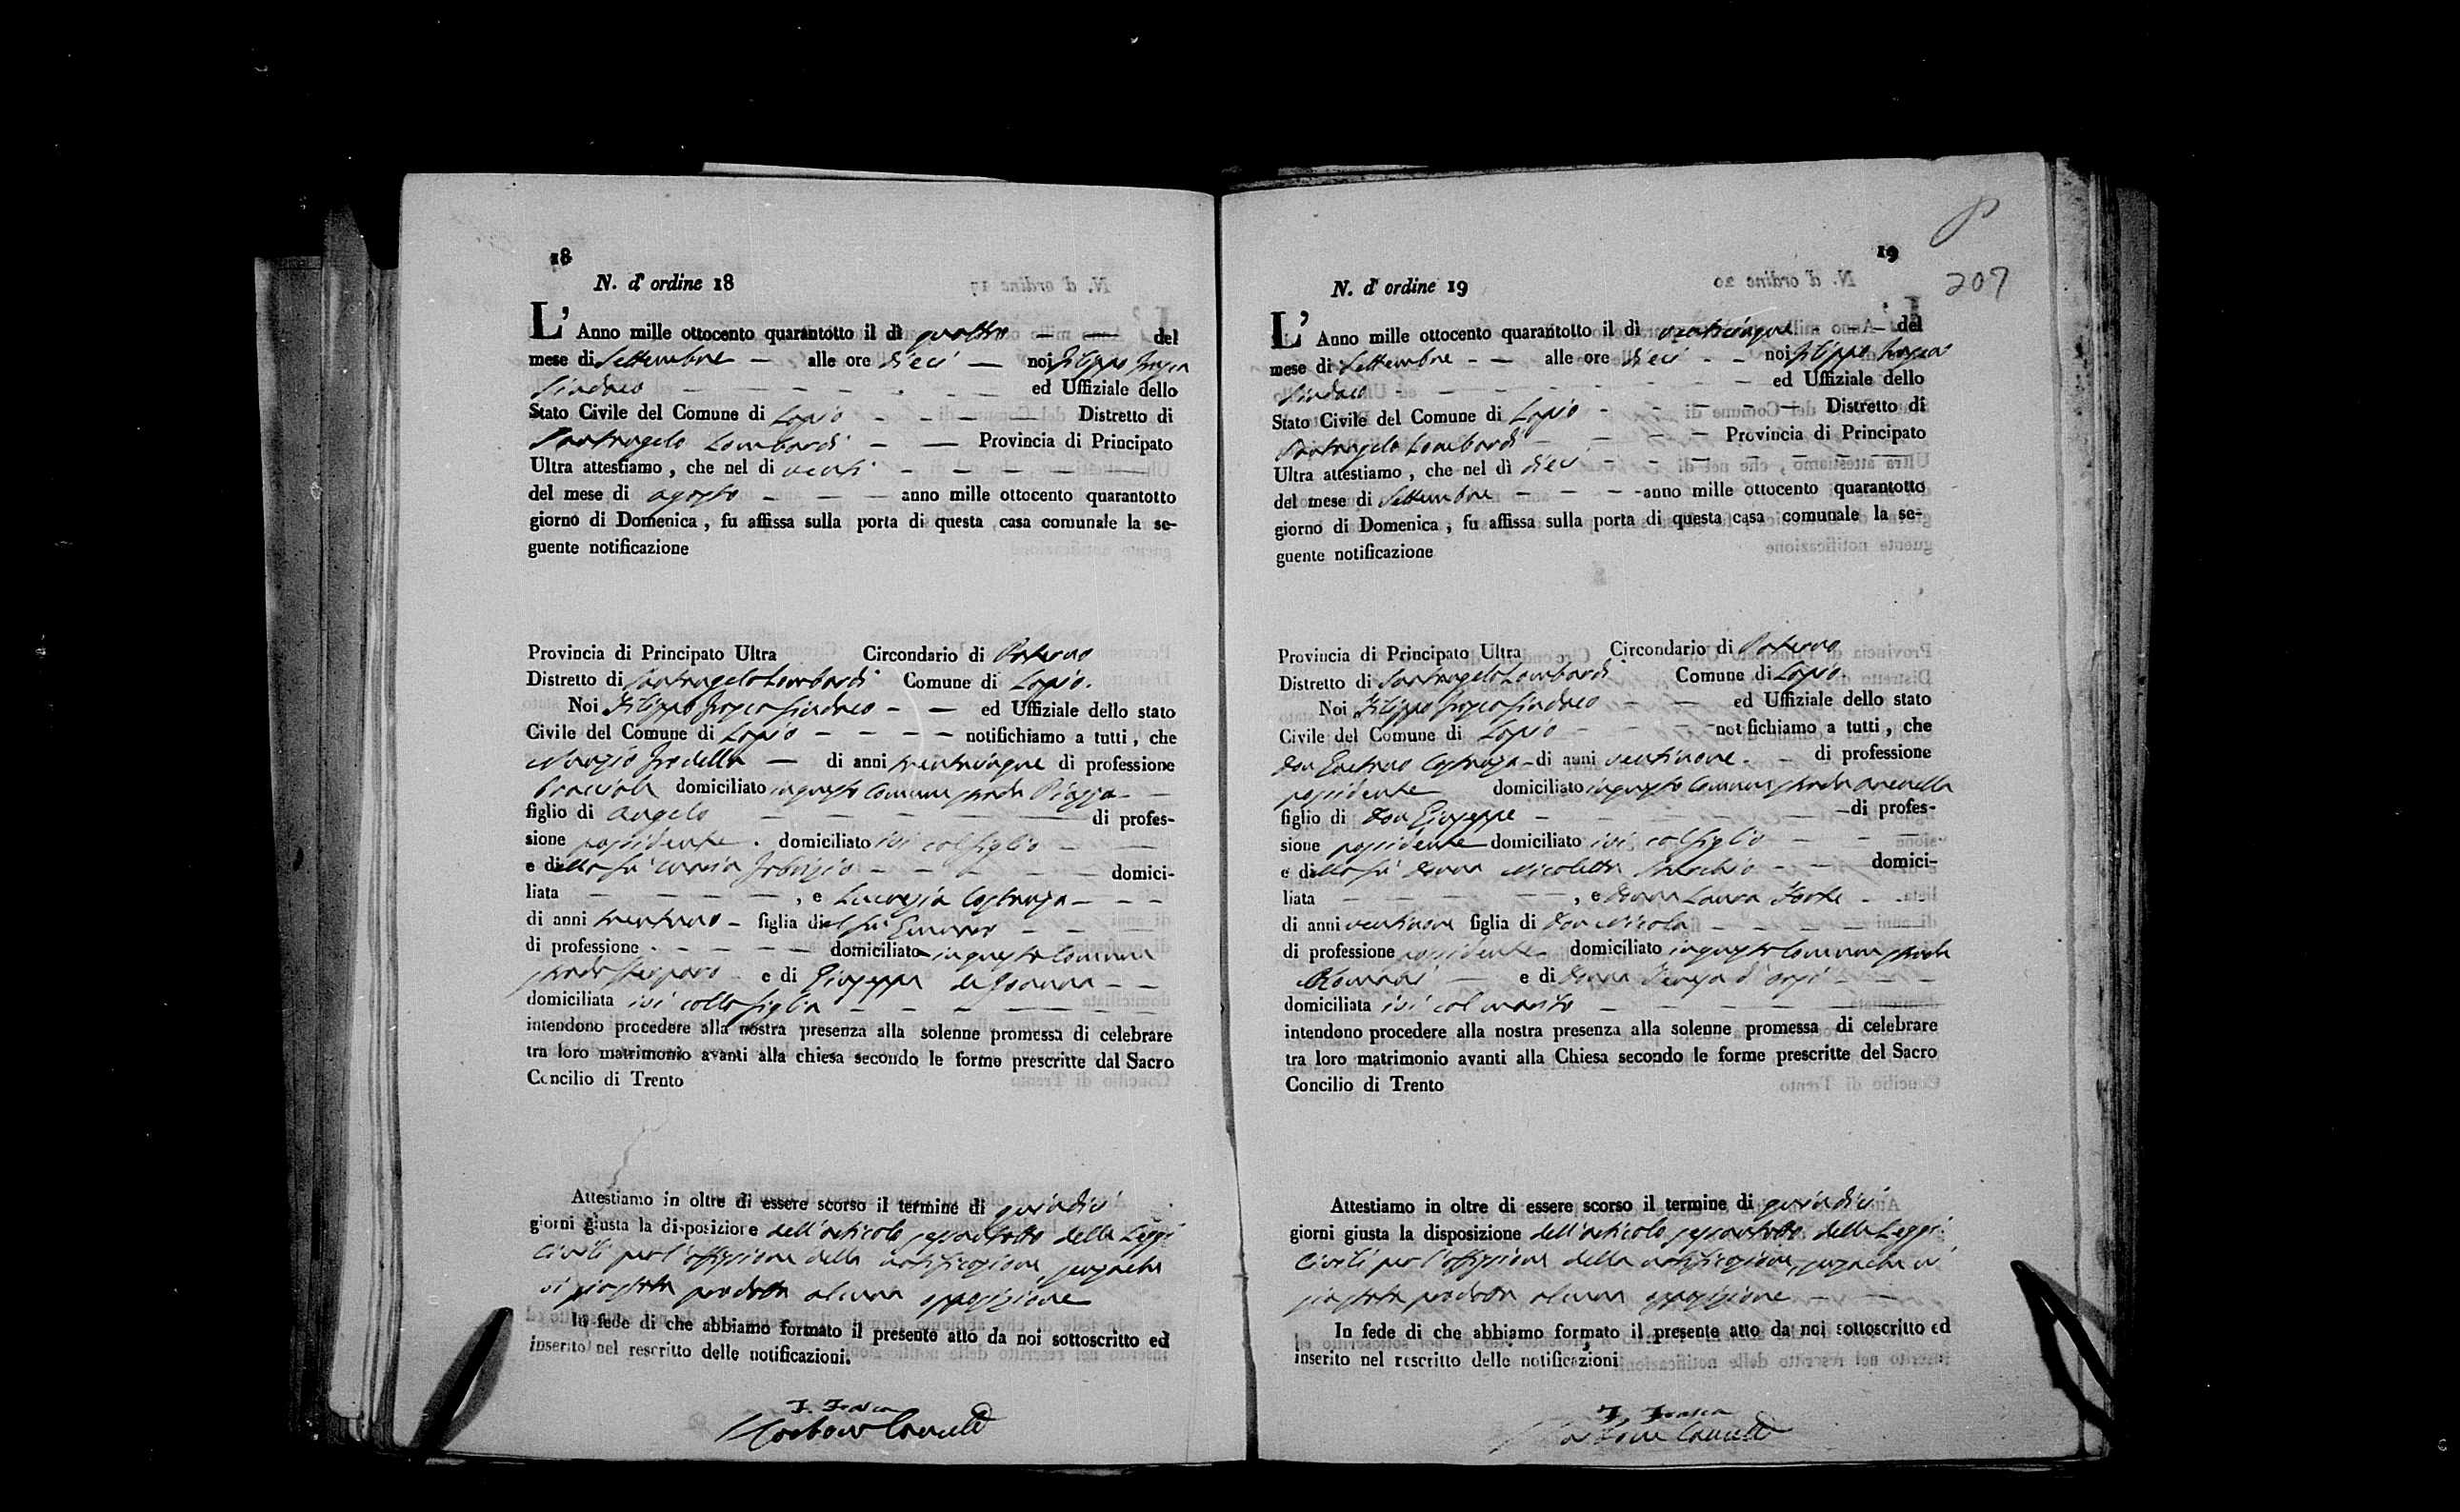 18
N. d' ordine 18
L' Anno mille ottocento quarantotto il dì quattro — — del
mese di Settembre — alle ore dieci — noi Filippo
Sindaco — — — — ed Uffiziale dello
Stato Civile del Comune di Lapio — — — Distretto di
Santangelo Lombardi — — Provincia di Principato
Ultra attestiamo, che nel dì venti — — — —
del mese di agosto — — — anno mille ottocento quarantotto
giorno di Domenica, fu affissa sulla porta di questa casa comunale la se-
guente notificazione
Provincia di Principato Ultra Circondario di Paterno
Distretto di Santangelo Lombardi Comune di Lapio.
Noi Filippo Sindaco — — ed Uffiziale dello stato
Civile del Comune di Lapio — — — — notifichiamo a tutti, che
Nunzio — di anni trentacinque di professione
domiciliato in questo Comune strada Piazza —
figlio di Angelo — — — — — di profes-
sione possidente. domiciliato ivi col figlio — —
e della fu Maria Fabrizio — — — — — domici-
liata — — — — —, e Lucrezia Castruza — — —
di anni trentuno — figlia del fu Gennaro — — —
di professione — — — — domiciliato in questo Comune
strada e di Giuseppa — —
domiciliata ivi colla figlia — — — — — —
intendono procedere alla nostra presenza alla solenne promessa di celebrare
tra loro matrimonio avanti alla chiesa secondo le forme prescritte dal Sacro
Concilio di Trento
Attestiamo in oltre di essere scorso il termine di quindici
giorni giusta la disposizione dell'articolo sessantotto delle Leggi
Civili per l'affissione della notificazione, senzacchè
vi sia stata prodotta alcuna opposizione
In fede di che abbiamo formato il presente atto da noi sottoscritto ed
inserito nel rescritto delle notificazioni.
19
207
N. d' ordine 19
L' Anno mille ottocento quarantotto il dì venticinque — — del
mese di Settembre — — alle ore dieci — — noi Filippo
Sindaco — — — — — — ed Uffiziale dello
Stato Civile del Comune di Lapio — — — — — Distretto di
Santangelo Lombardi — — — — Provincia di Principato
Ultra attestiamo, che nel dì dieci — — — — — —
del mese di Settembre — — — — anno mille ottocento quarantotto
giorno di Domenica, fu affissa sulla porta di questa casa comunale la se-
guente notificazione
Provincia di Principato Ultra Circondario di Paterno
Distretto di Santangelo Lombardi Comune di Lapio.
Noi Filippo Sindaco — — ed Uffiziale dello stato
Civile del Comune di Lapio — — — — not fichiamo a tutti, che
Don Gaetano Castruza — di anni ventinove. — di professione
possidente domiciliato in questo Comune strada
figlio di Don Giuseppe — — — — — di profes-
sione possidente domiciliato ivi col figlio — — — —
e della fu Donna Nicoletta — — domici-
liata — — — — —, e Donna Laura Forte — —
di anni ventinove figlia di Don Nicola — — — — —
di professione possidente domiciliato in questo Comune strada
— e di Donna — — —
domiciliata ivi col marito — — — — — —
intendono procedere alla nostra presenza alla solenne promessa di celebrare
tra loro matrimonio avanti alla Chiesa secondo le forme prescritte del Sacro
Concilio di Trento
Attestiamo in oltre di essere scorso il termine di quindici
giorni giusta la disposizione dell'articolo sessantotto delle Leggi
Civili per l'affissione della notificazione, senzacchè vi
sia stata prodotta alcuna opposizione — —
In fede di che abbiamo formato il presente atto da noi sottoscritto ed
inserito nel rescritto delle notificazioni